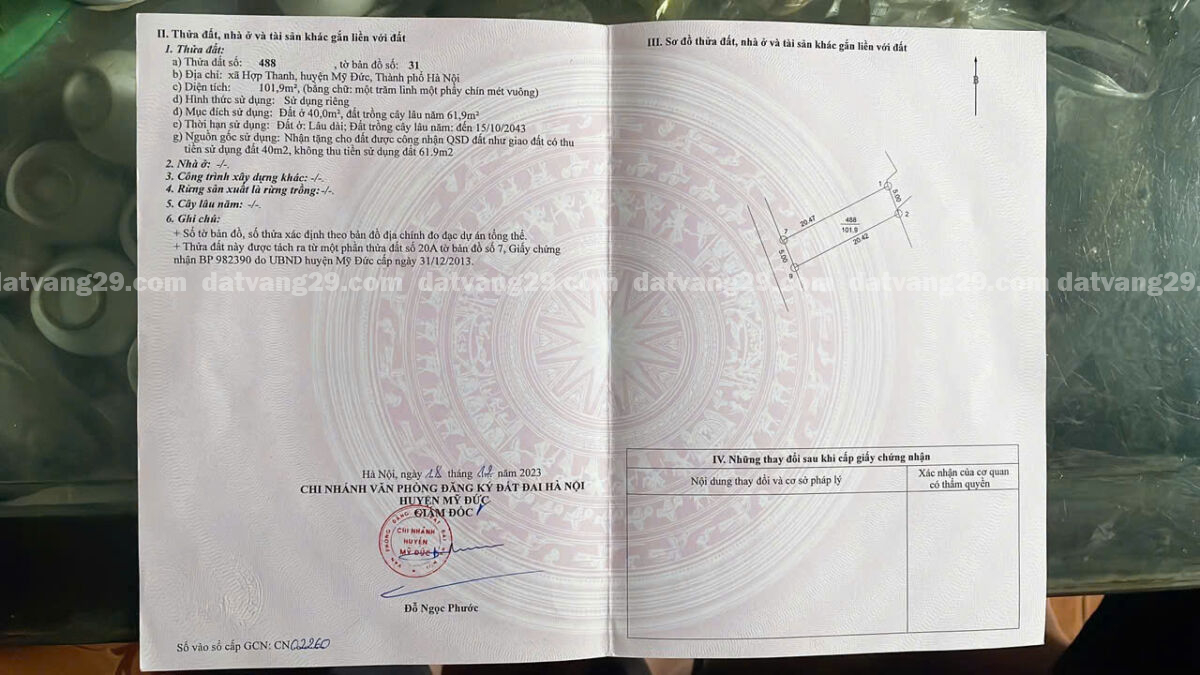 II. Thửa đất, nhà ở và tài sản khác gắn liền với đất
1. Thửa đất:
a) Thửa đất số: 488 , tờ bản đồ số: 31
b) Địa chỉ: xã Hợp Thanh, huyện Mỹ Đức, Thành phố Hà Nội
c) Diện tích: 101,9m², (bằng chữ: một trăm linh một phẩy chín mét vuông)
d) Hình thức sử dụng: Sử dụng riêng
đ) Mục đích sử dụng: Đất ở 40,0m², đất trồng cây lâu năm 61,9m²
e) Thời hạn sử dụng: Đất ở: Lâu dài; Đất trồng cây lâu năm: đến 15/10/2043
g) Nguồn gốc sử dụng: Nhận tặng cho đất được công nhận QSD đất như giao đất có thu
tiền sử dụng đất 40m2, không thu tiền sử dụng đất 61.9m2
2. Nhà ở: -/-.
3. Công trình xây dựng khác: -/-.
4. Rừng sản xuất là rừng trồng: -/-.
5. Cây lâu năm: -/-.
6. Ghi chú:
+ Số tờ bản đồ, số thửa xác định theo bản đồ địa chính đo đạc dự án tổng thể.
+ Thửa đất này được tách ra từ một phần thửa đất số 20A tờ bản đồ số 7, Giấy chứng
nhận BP 982390 do UBND huyện Mỹ Đức cấp ngày 31/12/2013.
datvang29.com datvang29.com datvang29.com datvang29.com datvang29.com datvang29.com
Hà Nội, ngày 18 tháng 12 năm 2023
CHI NHÁNH VĂN PHÒNG ĐĂNG KÝ ĐẤT ĐAI HÀ NỘI
HUYỆN MỸ ĐỨC
GIÁM ĐỐC
CHI NHÁNH
HUYỆN
MỸ ĐỨC
Đỗ Ngọc Phước
Số vào sổ cấp GCN: CN02260
III. Sơ đồ thửa đất, nhà ở và tài sản khác gắn liền với đất
B
1
5.00
2
20.47
488
101.9
20.42
7
5.00
9
IV. Những thay đổi sau khi cấp giấy chứng nhận
Nội dung thay đổi và cơ sở pháp lý
Xác nhận của cơ quan
có thẩm quyền